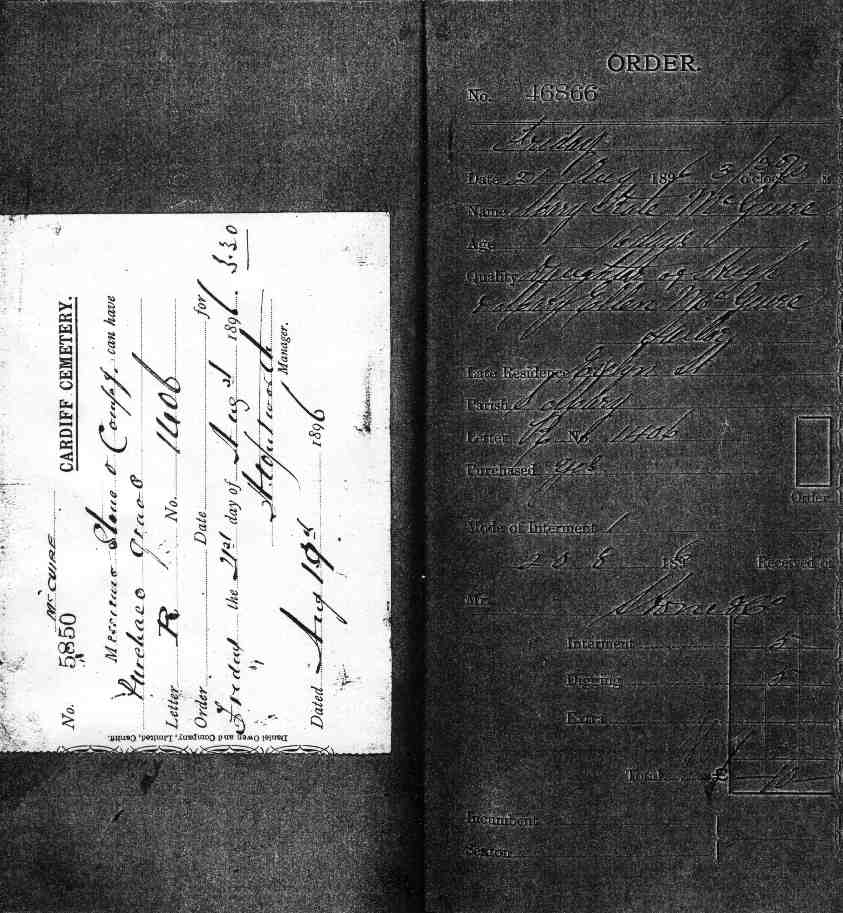 CARDIFF CEMETERY.
No. 5850 McGUIRE
Messieurs Stone & Compy, can have
Purchase Grave
Letter R No. 1406
Order Date for
Friday the 21st day of August 1896. 3.30
Manager.
Dated Aug 19th 1896
Daniel Owen and Company, Limited, Cardiff.
ORDER.
No. 46866
Friday
Date 21 Aug 1896 3 o'clock
Name Mary McGuire
Age days
Quality Daughter of Hugh
& Mary Ellen McGuire
Late Residence Evelyn St
Parish
Letter R No. 1406
Purchased yes
Order
Mode of Interment 1
20 8 1896 Received of
Mr. Stone & Co
Interment 5
Digging 5
Extra
Total £ 10
Incumbent
Sexton